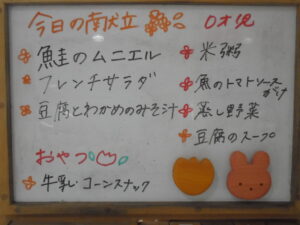 今日の献立
鮭のムニエル
フレンチサラダ
豆腐とわかめのみそ汁
おやつ
牛乳・コーンスナック
0才児
米粥
魚のトマトソースがけ
蒸し野菜
豆腐のスープ